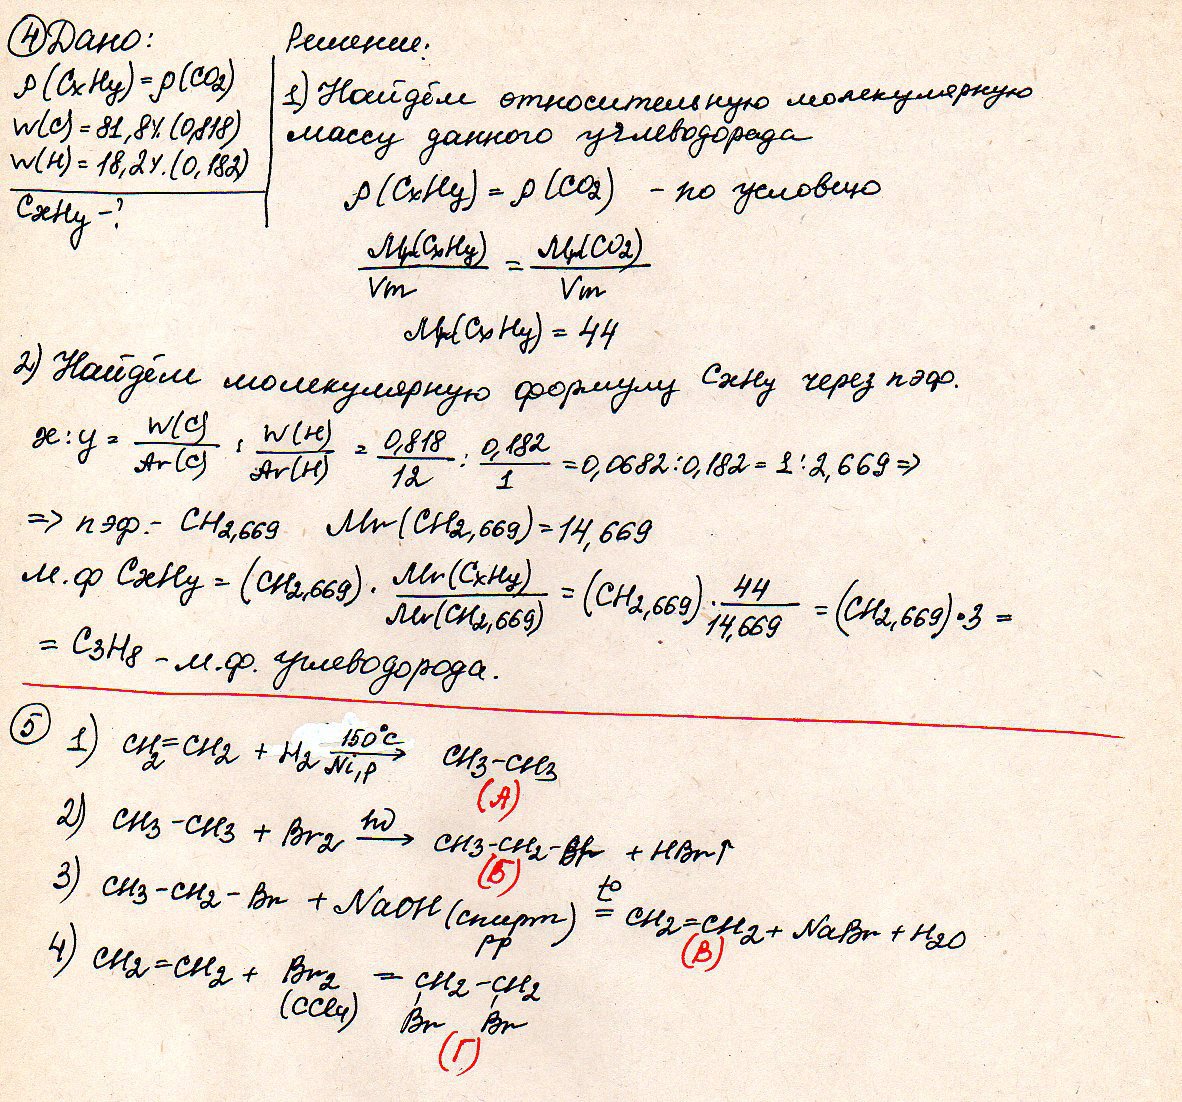 ④ Дано:
ρ(CxHy) = ρ(CO2)
W(C) = 81,8%.(0,818)
W(H) = 18,2%.(0,182)
CxHy - ?
Решение:
1) Найдём относительную молекулярную
массу данного углеводорода
ρ(CxHy) = ρ(CO2) - по условию
Mr(CxHy)/Vm = Mr(CO2)/Vm
Mr(CxHy) = 44
2) Найдём молекулярную формулу CxHy через пэф.
x : y = W(C)/Ar(C) : W(H)/Ar(H) = 0,818/12 : 0,182/1 = 0,0682 : 0,182 = 1 : 2,669 =>
=> пэф. - CH2,669 Mr(CH2,669) = 14,669
м.ф CxHy = (CH2,669) · Mr(CxHy)/Mr(CH2,669) = (CH2,669) · 44/14,669 = (CH2,669) · 3 =
= C3H8 - м.ф. углеводорода.
⑤ 1) CH2=CH2 + H2 150°C/Ni,p → CH3-CH3
(А)
2) CH3-CH3 + Br2 hν → CH3-CH2-Br + HBr↑
(Б)
3) CH3-CH2-Br + NaOH (спирт) t° = CH2=CH2 + NaBr + H2O
рр (В)
4) CH2=CH2 + Br2 = CH2-CH2
(CCl4) Br Br
(Г)